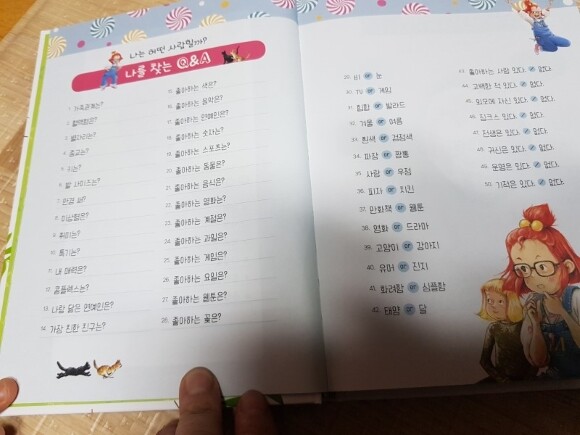 나는 어떤 사람일까?
나를 찾는 Q&A
1. 가족관계는?
2. 혈액형은?
3. 별자리는?
4. 종교는?
5. 키는?
6. 발 사이즈는?
7. 안경 써?
8. 이상형은?
9. 취미는?
10. 특기는?
11. 내 매력은?
12. 콤플렉스는?
13. 나랑 닮은 연예인은?
14. 가장 친한 친구는?
15. 좋아하는 색은?
16. 좋아하는 음악은?
17. 좋아하는 연예인은?
18. 좋아하는 숫자는?
19. 좋아하는 스포츠는?
20. 좋아하는 동물은?
21. 좋아하는 음식은?
22. 좋아하는 영화는?
23. 좋아하는 계절은?
24. 좋아하는 과일은?
25. 좋아하는 게임은?
26. 좋아하는 요일은?
27. 좋아하는 웹툰은?
28. 좋아하는 꽃은?
29. 비 or 눈
30. TV or 게임
31. 힙합 or 발라드
32. 겨울 or 여름
33. 흰색 or 검정색
34. 짜장 or 짬뽕
35. 사랑 or 우정
36. 피자 or 치킨
37. 만화책 or 웹툰
38. 영화 or 드라마
39. 고양이 or 강아지
40. 유머 or 진지
41. 화려함 or 심플함
42. 태양 or 달
43. 좋아하는 사람 있다. or 없다.
44. 고백한 적 있다. or 없다.
45. 외모에 자신 있다. or 없다.
46. 징크스 있다. or 없다.
47. 전생은 있다. or 없다.
48. 귀신은 있다. or 없다.
49. 운명은 있다. or 없다.
50. 기적은 있다. or 없다.